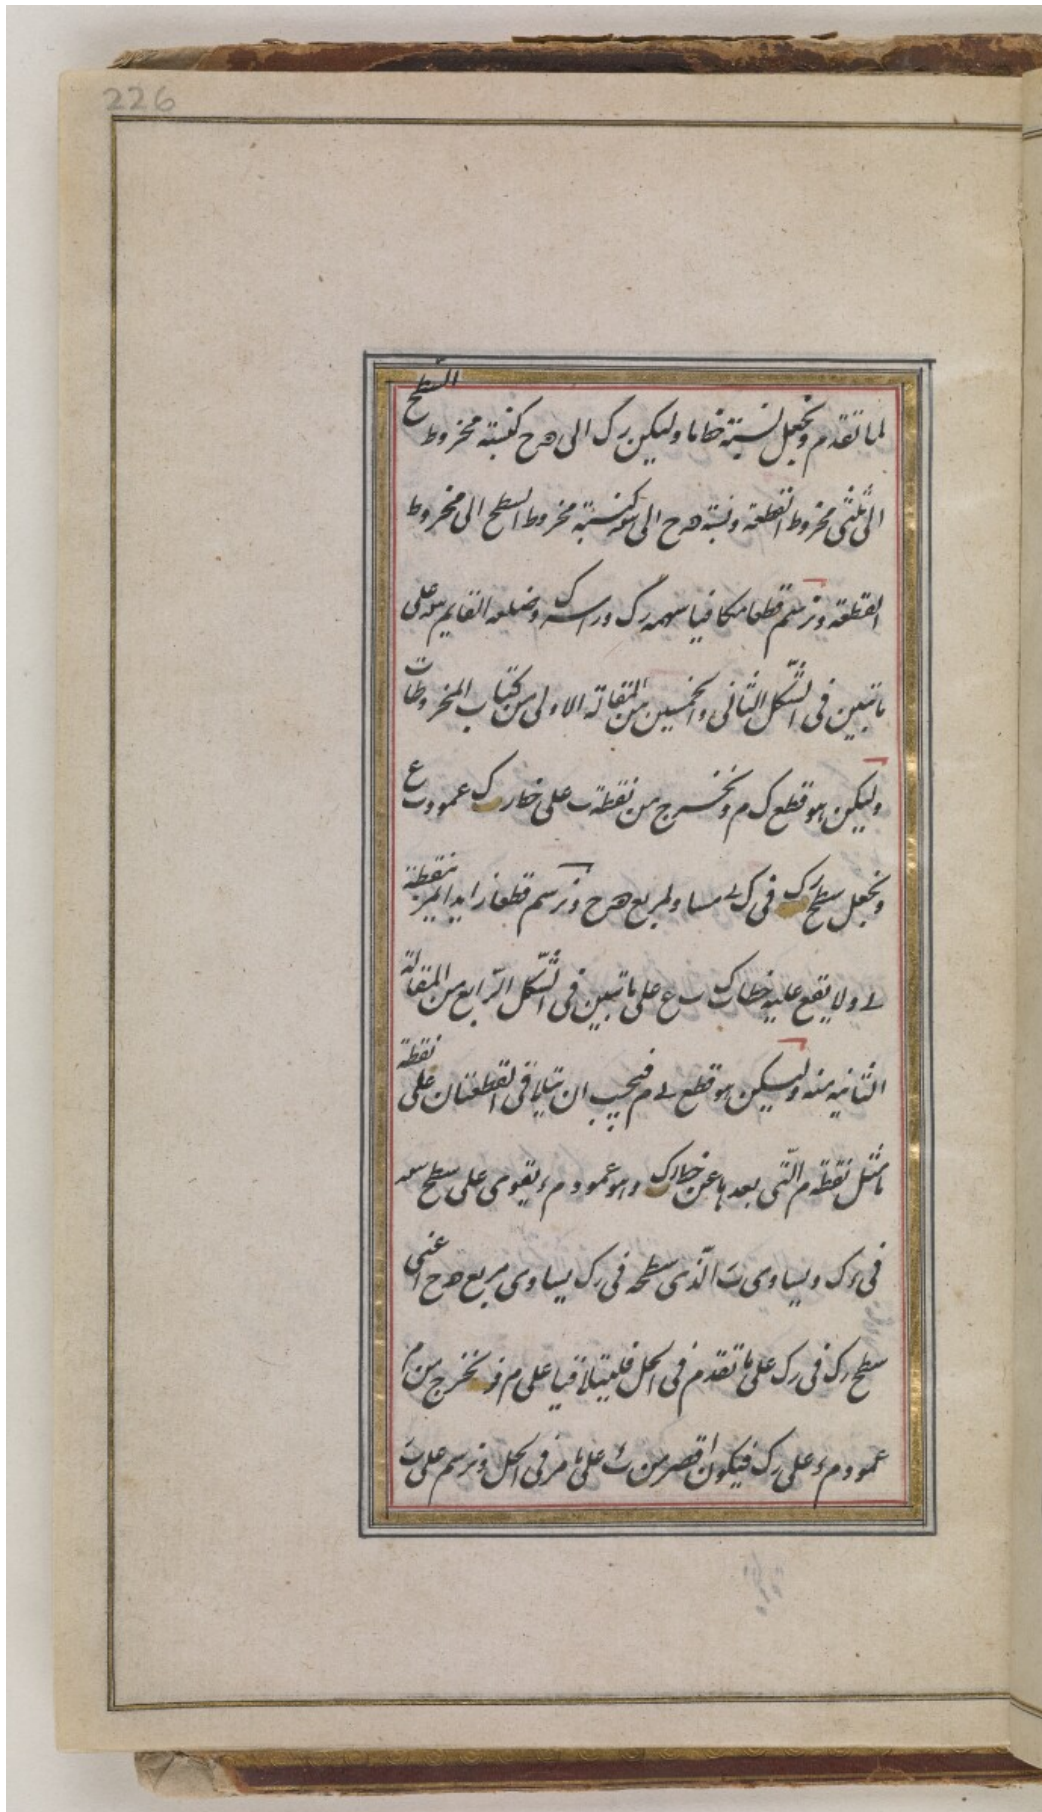 226
لما تقدم ونجعل نسبة خط ما وليكن رك الى هح كنسبة مخروط السطح
الى ثلثى مخروط القطعة ونسبة هح الى كنسبة مخروط السطح الى مخروط
القطعة ونرسم قطعا مكافيا سهمه رك وراسه ك وضلعه القايم على
ما تبين فى الشكل الثانى والخمسين من المقالة الاولى من كتاب المخروطات
وليكن هو قطع ك م ونخرج من نقطة ب على خط رك عمود ب ع
ونجعل سطح رك فى ك ل مساو لمربع هح ونرسم قطعا زايدا يمر بنقطة
ل ولا يقع عليه خطا ك ب ع على ما تبين فى الشكل الرابع من المقالة
الثانيه منه وليكن هو قطع ل م فيجب ان يتلاقى القطعتان على نقطة
ما مثل نقطة م التى بعدها عن خط رك وهو عمود م ء يقوى على سطح
فى ء ك ويساوى ث الذى سطحه فى رك يساوى مربع هح اعنى
سطح رك فى رك على ما تقدم فى الحل فليتلاقيا على م ونخرج من م
عمود م ء على رك فيكون اقصر من ث على ما مر فى الحل ونرسم على ث